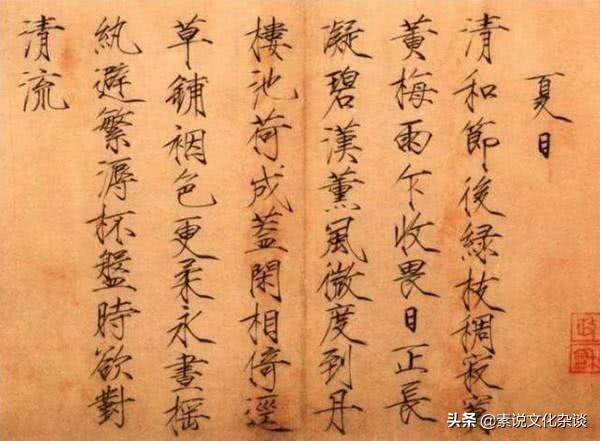 夏日
清和節後緑枝稠寂寞
黃梅雨乍收畏日正長
凝碧漢薰風微度到丹
樓池荷成蓋閑相倚逕
草鋪裀色更柔永晝搖
紈避繁溽杯盤時欲對
清流
政和
头条 @素说文化杂谈